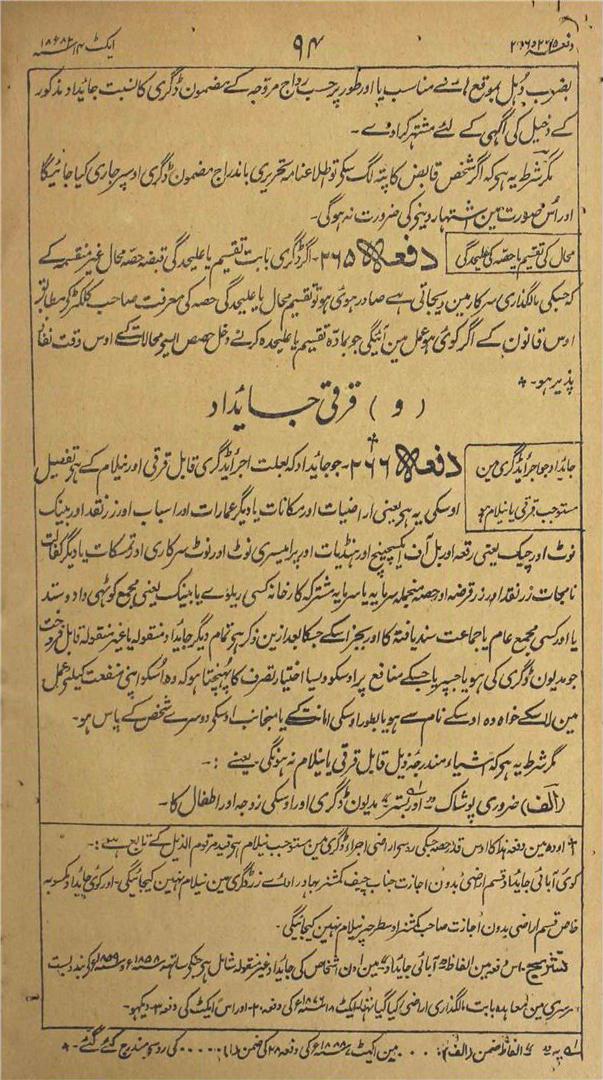 دفعہ ۲۶۵ و ۲۶۶ ۹۴ ایکٹ ۱۴ ۱۸۸۲ء
بضرب دُہل بموقع مناسب یا اور طور پر حسب رواج مروجہ کے مضمون ڈگری کا نسبت جائیداد مذکور
کے دخیل کی آگہی کے لئے مشتہر کرا دے ۔
مگر شرط یہ ہے کہ اگر شخص قابض کا پتہ لگ سکے تو اطلاعنامہ تحریری باندراج مضمون ڈگری اوسپر جاری کیا جائیگا
اور اُس صورت مین اشتہار دینے کی ضرورت نہ ہوگی۔
محال کی تقسیم یا حصہ کی علیحدگی
دفعہ ۲۶۵۔ اگر ڈگری بابت تقسیم یا علیحدگی قبضہ حصہ محال غیر منقسمہ کے
کہ جسکی مالگذاری سرکار مین دیجاتی ہے صادر ہوئی ہو تو تقسیم محال یا علیحدگی حصہ کی معرفت صاحب کلکٹر کے مطابق
اوس قانون کے اگر کوئی ہو عمل مین آئیگی جو بمادّہ تقسیم یا علیحدہ کرنے دخل حصص ایسے محالات کے اوس وقت نفاذ
پذیر ہو۔
( و ) قرقی جائیداد
جائیداد جو اجراء ڈگری مین
مستوجب قرقی یا نیلام ہو
دفعہ ۲۶۶۔ جو جائیداد کہ بعلت اجراء ڈگری قابل قرقی اور نیلام کے ہے تفصیل
اوسکی یہ ہے یعنی اراضیات اور مکانات یا دیگر عمارات اور اسباب اور زر نقد اور بینک
نوٹ اور چیک یعنی رقعہ اور بل آف ایکسچینج اور ہنڈیات اور پرامیسری نوٹ اور نوٹ سرکاری اور تمسکات یا دیگر کفالت
نامجات زر نقد اور زر قرضہ اور حصہ منجملہ سرمایہ یا سرمایہ مشترکہ کارخانہ کسی ریلوے یا بینک یعنی مجمع کوٹھی داد و ستد
یا اور کسی مجمع عام یا جماعت سند یافتہ کا اور بجز اسکے جسکا بعد ازین ذکر ہے تمام دیگر جائیداد منقولہ یا غیر منقولہ قابل فروخت
جو مدیون ڈگری کی ہو یا جسپر یا جسکے منافع پر اوسکو ویسا اختیار تصرف کا پہنچتا ہو کہ وہ اُسکو اپنی منفعت کیلئے عمل
مین لا سکے خواہ وہ اوسکے نام سے ہو یا بطور اوسکی امانت کے یا منجانب اوسکی دوسرے شخص کے پاس ہو۔
مگر شرط یہ ہے کہ اشیاء مندرجہ ذیل قابل قرقی یا نیلام نہ ہونگی یعنے :۔
(الف) ضروری پوشاک اور بستر مدیون ڈگری اور اوسکی زوجہ اور اطفال کا۔
اودہ مین دفعہ ہذا کا اوس قدر حصہ جسکی رو سے اراضی اجراء ڈگری مین مستوجب نیلام ہے قیود مرقوم الذیل کے تابع ہے :۔
کوئی آبائی جائیداد قسم اراضی بدون اجازت جناب چیف کمشنر بہادر ادائے زر ڈگری مین نیلام نہین کیجائیگی۔ اور کوئی جائیداد مکسوبہ
خاص قسم اراضی بدون اجازت صاحب کمشنر اوسطرح پر نیلام نہین کیجائیگی۔
تشریح۔ اس دفعہ مین الفاظ آبائی جائیداد مین اون اشخاص کی جائیداد غیر منقولہ شامل ہے جنکے ساتھ ۱۸۵۸ء و ۱۸۵۹ء کی بندوبست
سرسری مین معاہدہ بابت مالگذاری اراضی کیا گیا تھا ایکٹ ۱۸ ۱۸۷۶ء کی دفعہ ۲۰۔ اور اس ایکٹ کی دفعہ ۳۔ دیکھو۔
یہ الفاظ ضمن (الف) . . . . مین ایکٹ ۷ ۱۸۸۸ء کی دفعہ ۲۸ کی ضمن (۱) . . . . . کی رو سے مندرج کئے گئے ۔